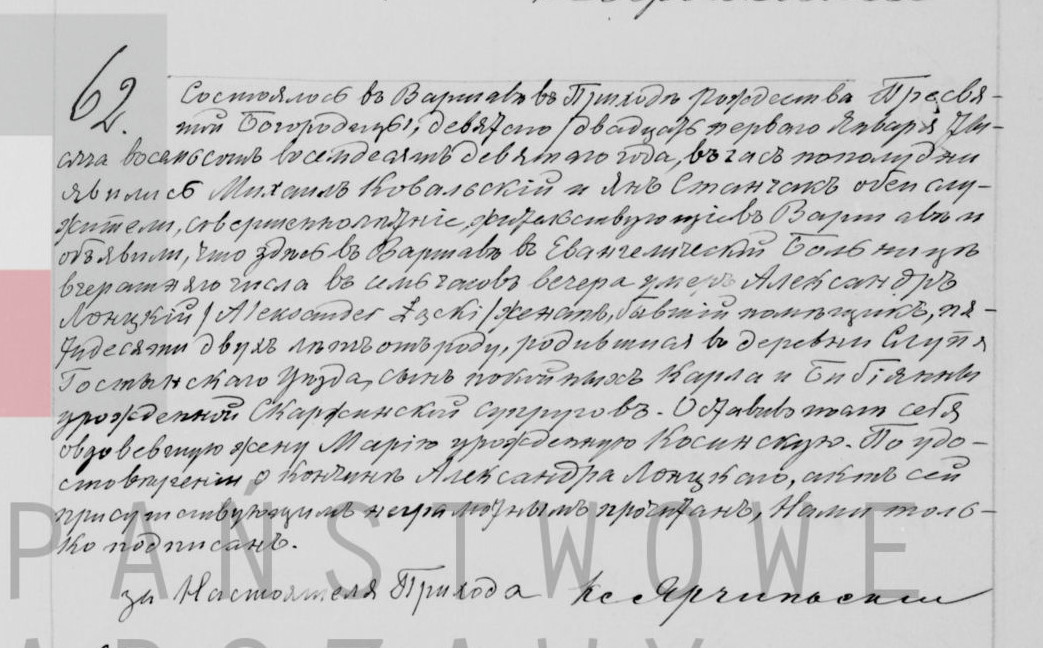 62.
Состоялось въ Варшавѣ въ Приходѣ Рождества Пресвя-
той Богородицы, девятаго /двадцать перваго Января, Ты-
сяча восемьсотъ восемдесятъ девятаго года, въ часъ пополудни
явились Михаилъ Ковальскій и Янъ Станчакъ обеи слу-
жители, совершеннолѣтніе, жительствующіе въ Варшавѣ и
объявили, что здѣсь въ Варшавѣ въ Евангелической Больницѣ
вчерашняго числа въ семь часовъ вечера умеръ Александръ
Лонцкій /Alexander Łącki/ женатъ, бывшій помѣщикъ, пя-
тидесяти двухъ лѣтъ отъ роду, родившійся въ деревни Слупя
Гостынскаго Уѣзда, сынъ покойныхъ Карла и Бибіянны
урожденной Скаржинской супруговъ. Оставивъ по себя
овдовевшую жену Марію урожденную Косинскую. По удо-
стовѣреніи о кончинѣ Александра Лонцкаго, актъ сей
присутствующимъ неграмотнымъ прочитанъ, Нами толь-
ко подписанъ.
за Настоятеля Прихода Кс
PAŃSTWOWE